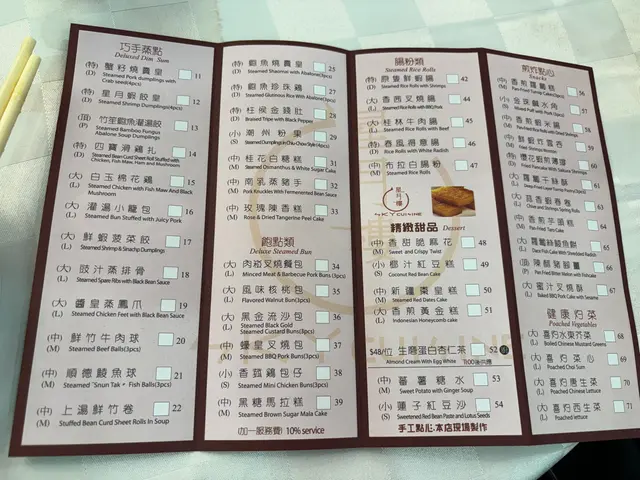 巧手蒸點
Deluxed Dim Sum
(特) 蟹籽燒賣皇 11
(D) Steamed Pork dumplings with Crab seeds(4pcs)
(特) 星月蝦餃皇 12
(D) Steamed Shrimp Dumplings(4pcs)
(頂) 竹笙鮑魚灌湯餃 13
(P) Steamed Bamboo Fungus Abalone Soup Dumplings
(特) 四寶滑雞扎 14
(D) Steamed Bean Curd Sheet Roll Stuffed with Chicken, Fish Maw, Ham and Mushroom
(大) 白玉棉花雞 15
(L) Steamed Chicken with Fish Maw And Black Mushroom
(大) 灌湯小籠包 16
(L) Steamed Bun Stuffed with Juicy Pork
(大) 鮮蝦菠菜餃 17
(L) Steamed Shrimp & Sinachp Dumplings
(大) 豉汁蒸排骨 18
(L) Steamed Spare Ribs with Black Bean Sauce
(大) 醬皇蒸鳳爪 19
(L) Steamed Chicken Feet with Black Bean Sauce
(中) 鮮竹牛肉球 20
(M) Steamed Beef Balls(3pcs)
(中) 順德鯪魚球 21
(M) Steamed "Snun Tak" Fish Balls(3pcs)
(中) 上湯鮮竹卷 22
(M) Stuffed Bean Curd Sheet Rolls In Soup
(特) 鮑魚燒賣皇 25
(D) Steamed Shaomai with Abalone(3pcs)
(特) 鮑魚珍珠雞 27
(D) Steamed Glutinous Rice With Abalone(3pcs)
(特) 柱侯金錢肚 28
(D) Braised Tripe with Black Pepper
(小) 潮州粉果 29
(S) Steamed Dumplings in Chiu Chow Style(4pcs)
(中) 桂花白糖糕 31
(M) Steamed Osmanthus & White Sugar Cake
(中) 南乳蒸豬手 32
(M) Pork Knuckles with Fermented Bean Sauce
(中) 玫瑰陳香糕 33
(M) Rose & Dried Tangerine Peel Cake
飽點類
Deluxe Steamed Bun
(大) 肉崧叉燒餐包 34
(L) Minced Meat & Barbecue Pork Buns (3pcs)
(大) 風味核桃包 35
(L) Flavored Walnut Bun(3pcs)
(大) 黑金流沙包 36
(L) Steamed Black Gold Custard Buns(3pcs)
(中) 蠔皇叉燒包 37
(M) Steamed BBQ Pork Buns(3pcs)
(小) 香菰雞包仔 38
(S) Steamed Mini Chicken Buns(3pcs)
(中) 黑糖馬拉糕 39
(M) Steamed Brown Sugar Mala Cake
(加一服務費) 10% service
腸粉類
Steamed Rice Rolls
(特) 原隻鮮蝦腸 42
(D) Steamed Rice Rolls with Shrimps
(大) 香茜叉燒腸 44
(L) Steamed Rice Rolls with BBQ Pork
(大) 桂林牛肉腸 45
(L) Steamed Rice Rolls with Beef
(特) 春風得意腸 46
(D) Rice Rolls with White Radish
(中) 布拉白腸粉 47
(M) Steamed Rice Rolls
星月樓
SKY CUISINE
精緻甜品 Dessert
(中) 香甜脆麻花 48
(M) Sweet and Crispy Twist
(小) 椰汁紅豆糕 49
(S) Coconut Red Bean Cake
(中) 新疆棗皇糕 50
(M) Steamed Red Dates Cake
(大) 香煎黃金糕 51
(L) Indonesian Honeycomb cake
$48/位 生磨蛋白杏仁茶 52
Almond Cream With Egg White
(中) 蕃薯糖水 53
(M) Sweet Potato with Ginger Soup
(小) 蓮子紅豆沙 54
(S) Sweetened Red Bean Paste and Lotus Seeds
手工點心.本店現場製作
煎炸點心
Snacks
(中) 香煎蘿蔔糕 56
(M) Pan Fried Turnip Cake
(小) 金珠鹹水角 57
(中) 香煎蝦米腸 58
(中) 鮮蝦炸雲吞 59
(特) 櫻花蝦煎薄罉 60
(大) 蘿蔔千絲酥 61
(大) 蒜香蝦春卷 63
(L) Shrimp and Shrimps Spring Rolls
(中) 香煎芋頭糕 64
(M) Pan Fried Taro Cake
(大) 蘿蔔絲鯪魚餅 65
(L) Dace Fish Cake With Shredded Radish
(頂) 陳醋豬腳薑 66
(大) 蜜汁叉燒酥 67
(L) Baked BBQ Pork Cake with Sesame
健康灼菜
Poached Vegetables
(大) 喜灼水東芥菜 68
(L) Boiled Chinese Mustard Greens
(大) 喜灼菜心 69
(L) Poached Choi Sum
(大) 喜灼唐生菜 70
(L) Poached Chinese Lettuce
(大) 喜灼西生菜 71
(L) Poached lettuce